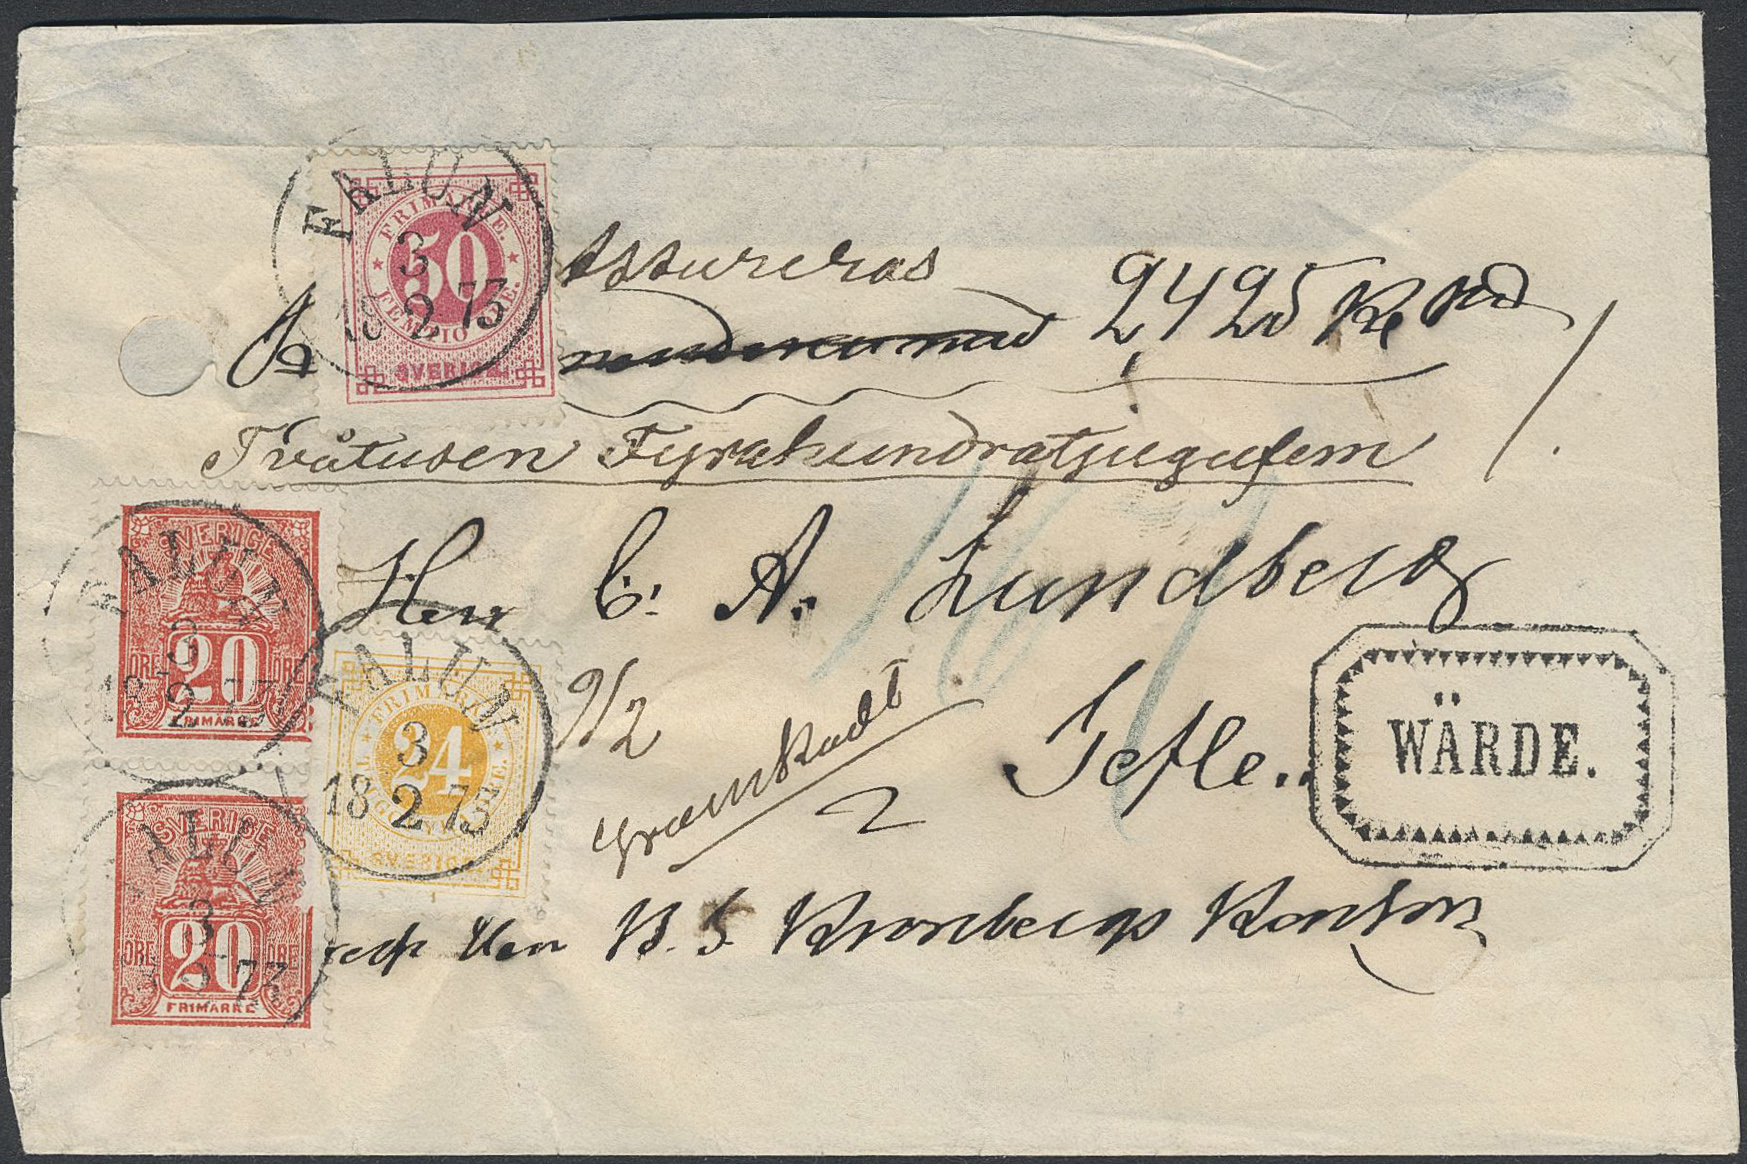 FALUN
3
18 2 73
FRIMÄRKE.
50
FEMTIO ÖRE.
SVERIGE.
Assureras
2425 Rd Rmt
Tvåtusen Fyrahundratjugufem
FALUN
3
18 2 73
SVERIGE
ÖRE 20 ÖRE
FRIMÄRKE
Herr C. A. Lundberg
FALUN
3
18 2 73
FRIMÄRKE.
24
TJUGOFYRA ÖRE.
SVERIGE.
Gefle.
WÄRDE.
FALUN
3
2 73
SVERIGE
ÖRE 20 ÖRE
FRIMÄRKE
Herr Kronbergs Kontor